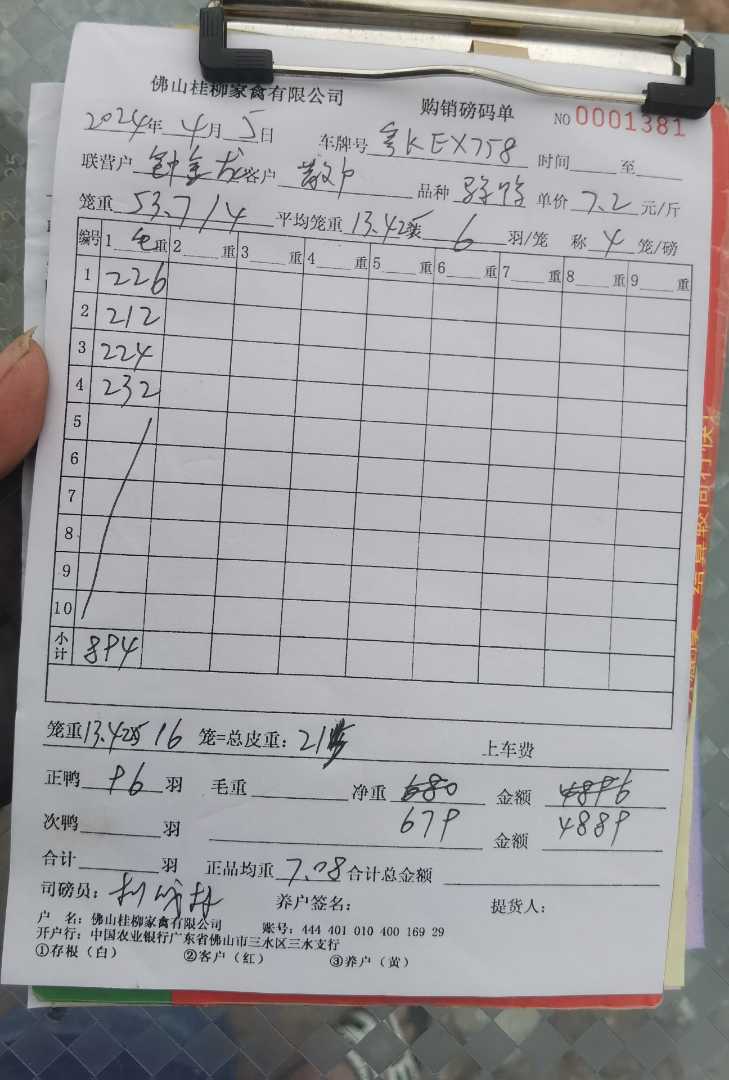 佛山桂柳家禽有限公司 购销磅码单 NO 0001381
2024年 4月 5日 车牌号 粤KEX758 时间____至____
联营户 钟金龙 客户 散户 品种 单价 7.2 元/斤
笼重 53.7/4 平均笼重 13.425 装 6 羽/笼 称 4 笼/磅
编号 1 毛 重 2____重 3____重 4____重 5____重 6____重 7____重 8____重 9____重
1 226
2 212
3 224
4 232
5
6
7
8
9
10
小计 894
笼重 13.425 16 笼=总皮重: 215 上车费
正鸭 96 羽 毛重 净重 680 金额 4896
次鸭 羽 679 金额 4889
合计 羽 正品均重 7.08 合计总金额
司磅员: 养户签名: 提货人:
户 名: 佛山桂柳家禽有限公司 账号: 444 401 010 400 169 29
开户行: 中国农业银行广东省佛山市三水区三水支行
①存根(白) ②客户(红) ③养户(黄)